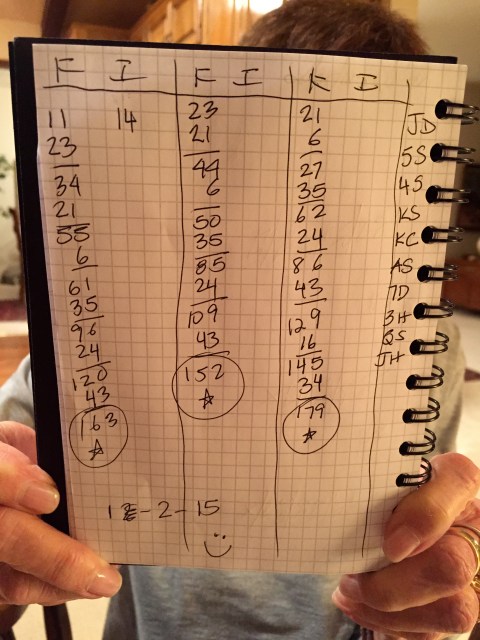 F I F I K D
11 14
23
34
21
55
6
61
35
96
24
120
43
163
23
21
44
6
50
35
85
24
109
43
152
21
6
27
35
62
24
86
43
129
16
145
34
179
JD
5S
4S
KS
KC
AS
7D
3H
QS
JH
12-2-15